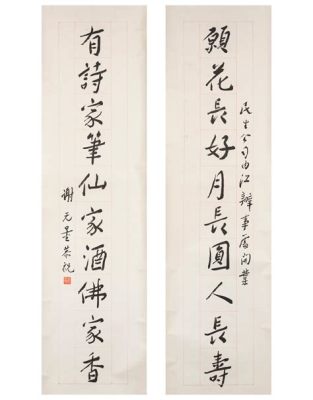 願花長好月長圓人長壽
民生公司內江辦事處開業
有詩家筆仙家酒佛家香
謝无量恭祝